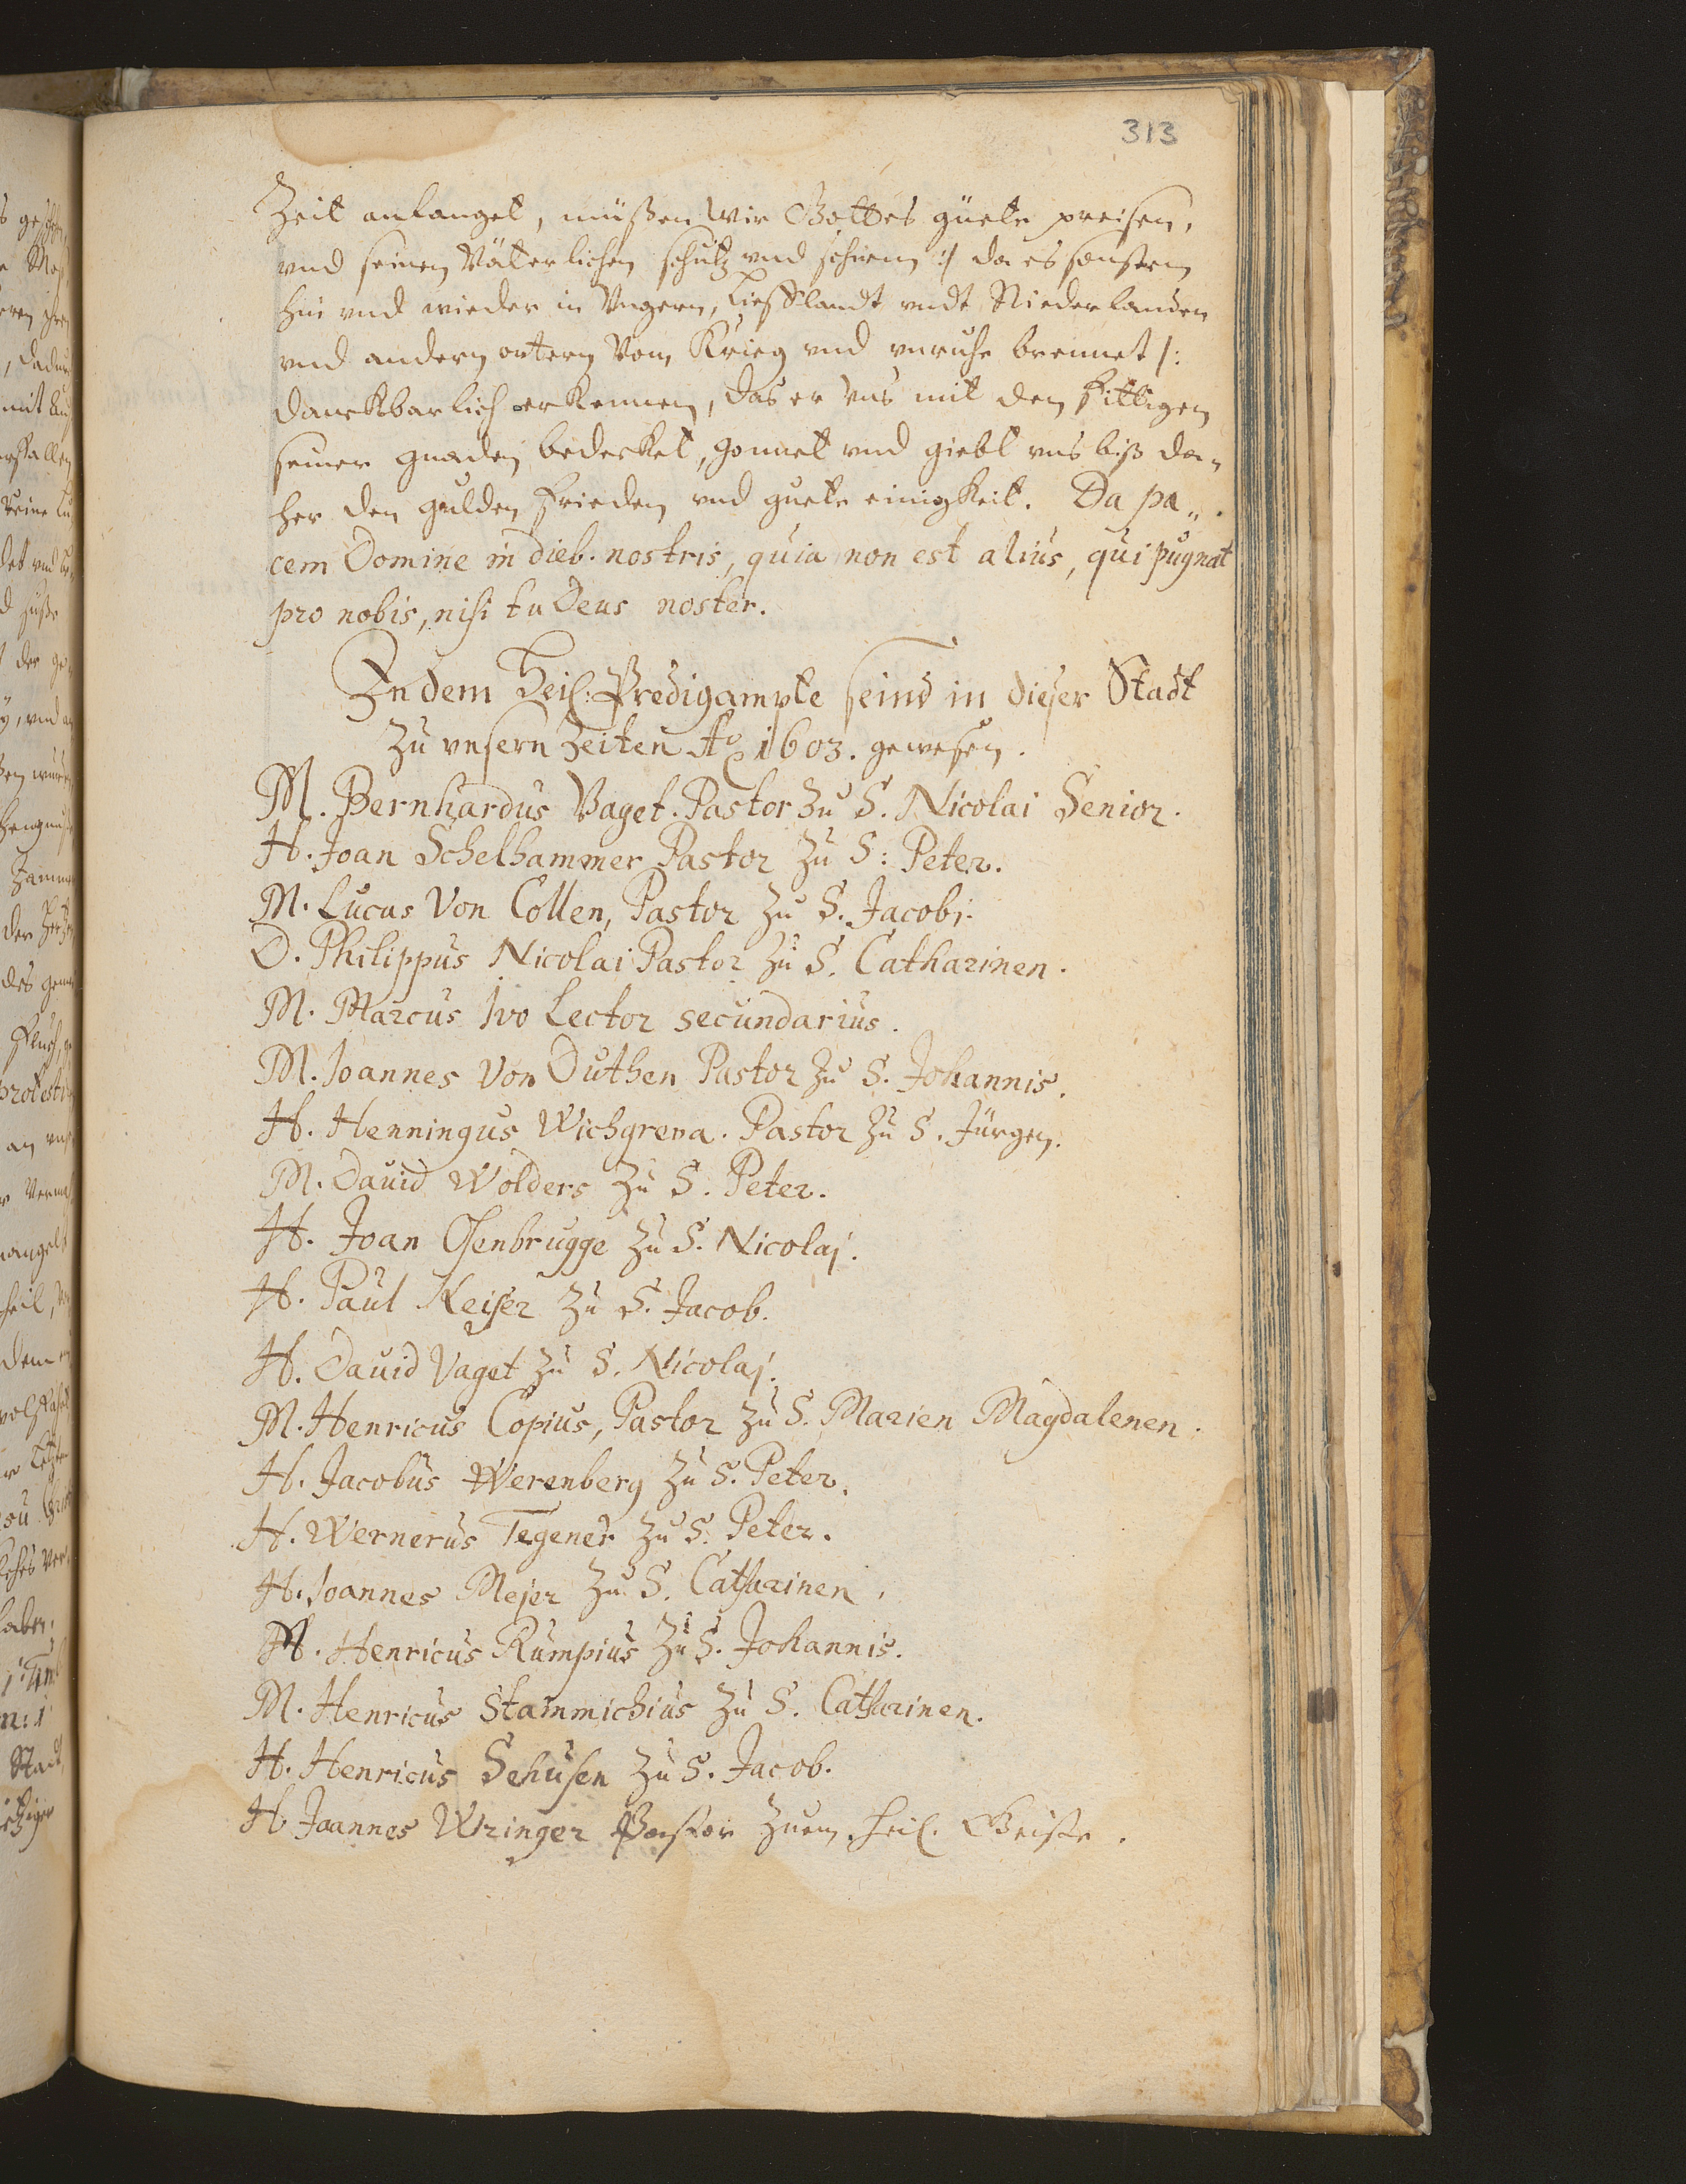 313
Zeit anlanget, müßen wir Gottes güete preisen,
vnd seinen Väterlichen schutz vnd schirm :/ da es sonsten
hin vnd wieder in Vngern, Liefflandt vndt Niederlanden
vnd andern ortern Vom Krieg vnd vnruhe brennet /:
danckbarlich erkennen, das er vns mit den fittigen
seiner gnaden bedecket, gonnet vnd giebt vns biß da„
her den gulden frieden vnd guete einigkeit. Da pa„
cem Domine in dieb. nostris, quia non est alius, qui pugnat
pro nobis, nisi tu Deus noster.
In dem Heil: Predigampte seind in dieser Stadt
zu vnsern Zeiten Aº 1603. gewesen.
M. Bernhardus Vaget. Pastor zu S. Nicolai Senior.
H. Joan Schelhammer Pastor zu S: Peter.
M. Lucas Von Collen, Pastor zu S. Jacobi.
D. Philippus Nicolai Pastor zu S. Catharinen.
M. Marcus Ivo Lector secundarius.
M. Joannes Von Duthen Pastor zu S. Johannis.
H. Henningus Wichgreva. Pastor zu S. Jürgen.
M. Dauid Wolders zu S. Peter.
H. Joan Osenbrugge zu S. Nicolaj.
H. Paul Keiser zu S. Jacob.
H. Dauid Vaget zu S. Nicolaj.
M. Henricus Copius, Pastor zu S. Marien Magdalenen.
H. Jacobus Werenberg zu S. Peter.
H. Wernerus Tegener zu S. Peter.
H. Joannes Mejer zu S. Catharinen.
M. Henricus Rumpius zu S. Johannis.
M. Henricus Stammichius zu S. Catharinen.
H. Henricus Sehusen zu S. Jacob.
H. Joannes Wringer Pastor zuem heil. Geiste.